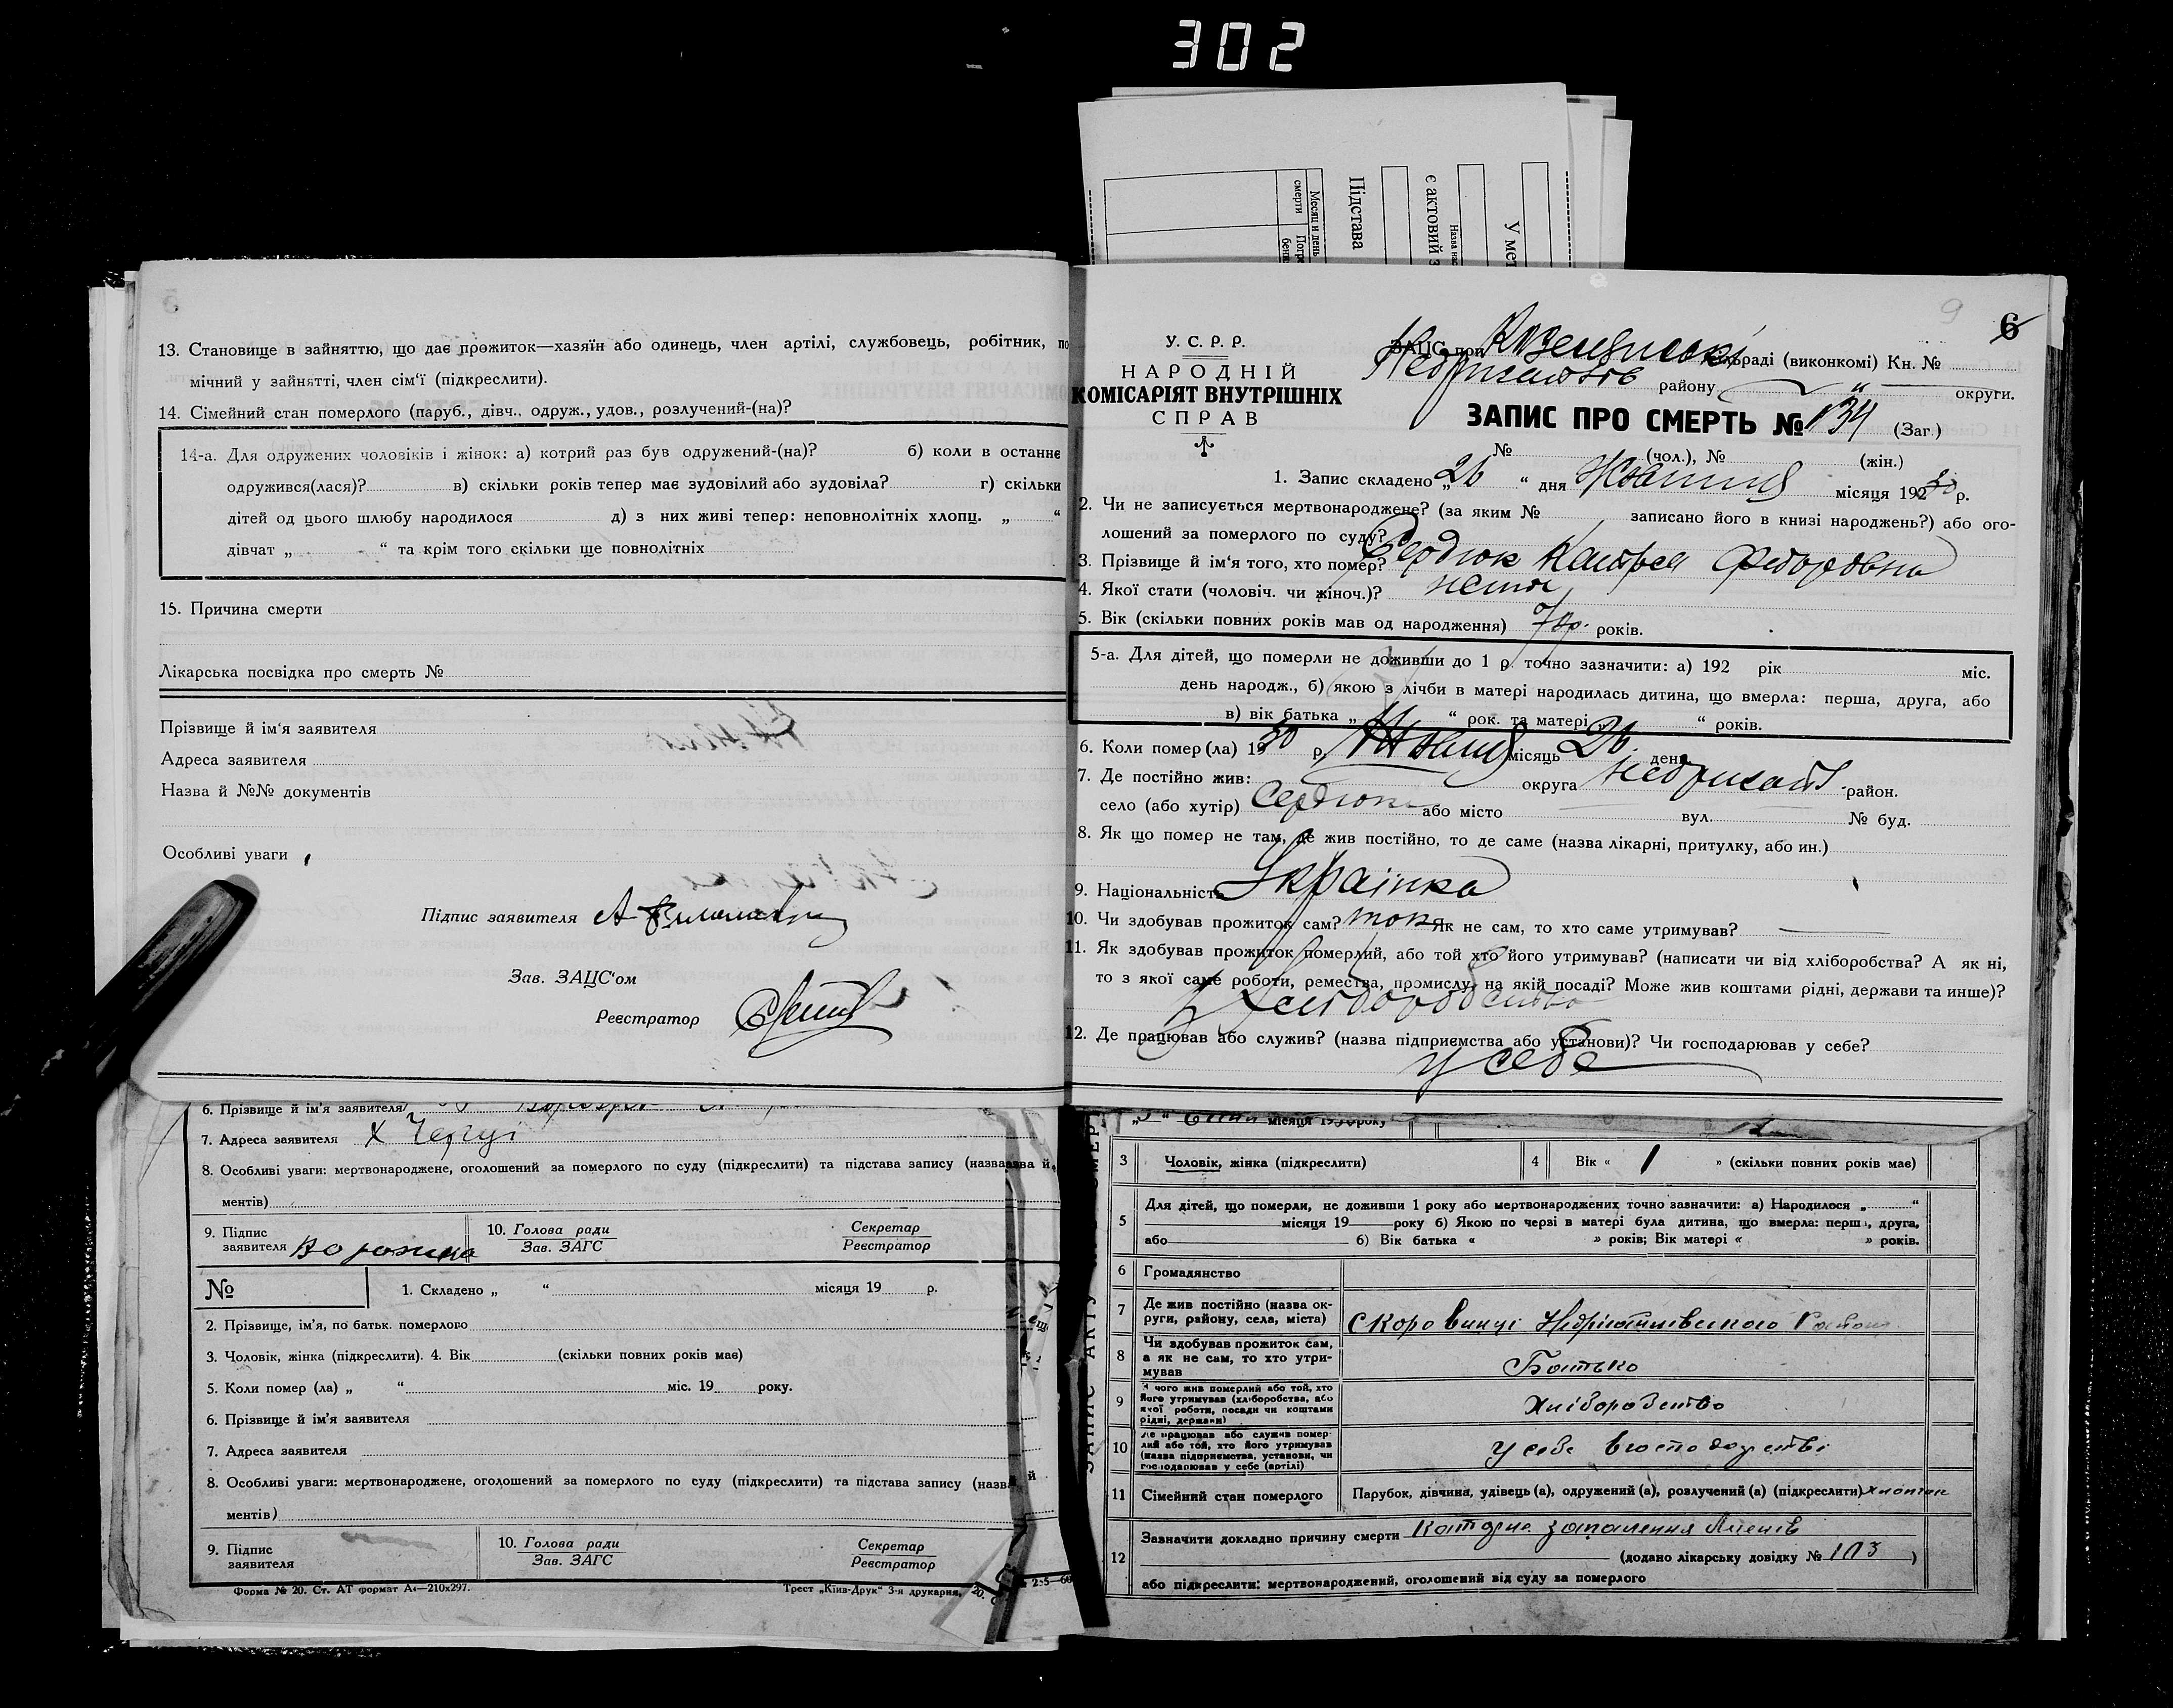 302
Месяц и день смерти
Підстава
є актовий з
У мет
13. Становище в зайняттю, що дає прожиток—хазяїн або одинець, член артілі, службовець, робітник, по
мічний у зайнятті, член сім'ї (підкреслити).
14. Сімейний стан померлого (паруб., дівч., одруж., удов., розлучений-(на)?
14-а. Для одружених чоловіків і жінок: а) котрий раз був одружений-(на)? б) коли в останнє
одружився(лася)? в) скільки років тепер має зудовілий або зудовіла? г) скільки
дітей од цього шлюбу народилося д) з них живі тепер: неповнолітніх хлопц. „ “
дівчат „ “ та крім того скільки ще повнолітніх
15. Причина смерти
Лікарська посвідка про смерть №
Прізвище й ім'я заявителя
Адреса заявителя
Назва й №№ документів
Особливі уваги
Підпис заявителя
Зав. ЗАЦС'ом
Реєстратор
6. Прізвище й ім'я заявителя
7. Адреса заявителя х Черуі
8. Особливі уваги: мертвонароджене, оголошений за померлого по суду (підкреслити) та підстава запису (назва й
ментів)
9. Підпис заявителя
10. Голова ради
Зав. ЗАГС
Секретар
Реєстратор
№ 1. Складено „ “ місяця 19 р.
2. Прізвище, ім'я, по батьк. померлого
3. Чоловік, жінка (підкреслити). 4. Вік (скільки повних років має)
5. Коли помер (ла) „ “ міс. 19 року.
6. Прізвище й ім'я заявителя
7. Адреса заявителя
8. Особливі уваги: мертвонароджене, оголошений за померлого по суду (підкреслити) та підстава запису (назв й
ментів)
9. Підпис заявителя
10. Голова ради
Зав. ЗАГС
Секретар
Реєстратор
Форма № 20. Ст. АТ формат А4—210х297. Трест „Київ-Друк“ 3-я друкарня,
9 6
У. С. Р. Р.
НАРОДНІЙ
КОМІСАРІЯТ ВНУТРІШНІХ
СПРАВ
ЗАЦС при раді (виконкомі) Кн. №
району „ округи.
ЗАПИС ПРО СМЕРТЬ № 134 (Заг.)
№ (чол.), № (жін.)
1. Запис складено „ 26 “ дня Жовтня місяця 1930 р.
2. Чи не записується мертвонароджене? (за яким № записано його в книзі народжень?) або ого-
лошений за померлого по суду?
3. Прізвище й ім'я того, хто помер? Сердюк Федоровна
4. Якої стати (чоловіч. чи жіноч.)?
5. Вік (скільки повних років мав од народження) років.
5-а. Для дітей, що померли не доживши до 1 р. точно зазначити: а) 192 рік міс.
день народж., б) якою з лічби в матері народилась дитина, що вмерла: перша, друга, або
в) вік батька „ “ рок. та матері „ “ років.
6. Коли помер (ла) 1930 р. Жовтня місяць 26 день
7. Де постійно жив: округа Недригайл. район.
село (або хутір) Сердюки або місто вул. № буд.
8. Як що помер не там, де жив постійно, то де саме (назва лікарні, притулку, або ин.)
9. Національність Українка
10. Чи здобував прожиток сам? так Як не сам, то хто саме утримував?
11. Як здобував прожиток померлий, або той хто його утримував? (написати чи від хліборобства? А як ні,
то з якої саме роботи, ремества, промислу, на якій посаді? Може жив коштами рідні, держави та инше)?
Хліборобство
12. Де працював або служив? (назва підприємства або установи)? Чи господарював у себе?
у себе
місяця 1930 року
3 Чоловік, жінка (підкреслити) 4 Вік « 1 » (скільки повних років має)
5 Для дітей, що померли, не доживши 1 року або мертвонароджених точно зазначити: а) Народилося „ “
місяця 19 року б) Якою по черзі в матері була дитина, що вмерла: перша, друга,
або б) Вік батька « » років; Вік матері « » років.
6 Громадянство
7 Де жив постійно (назва округи, району, села, міста) Скоровинці
8 Чи здобував прожиток сам, а як не сам, то хто утримував Батько
9 З чого жив померлий або той, хто його утримував (хліборобства, або якої роботи, посади чи коштами рідні, держави) Хліборобство
10 Де працював або служив померлий або той, хто його утримував (назва підприємства, установи, чи господарював у себе (артілі) У себе в господарстві
11 Сімейний стан померлого Парубок, дівчина, удівець (а), одружений (а), розлучений (а) (підкреслити) хлопчик
12 Зазначити докладно причину смерти запалення легенів
(додано лікарську довідку № 103 )
або підкреслити: мертвонароджений, оголошений від суду за померлого